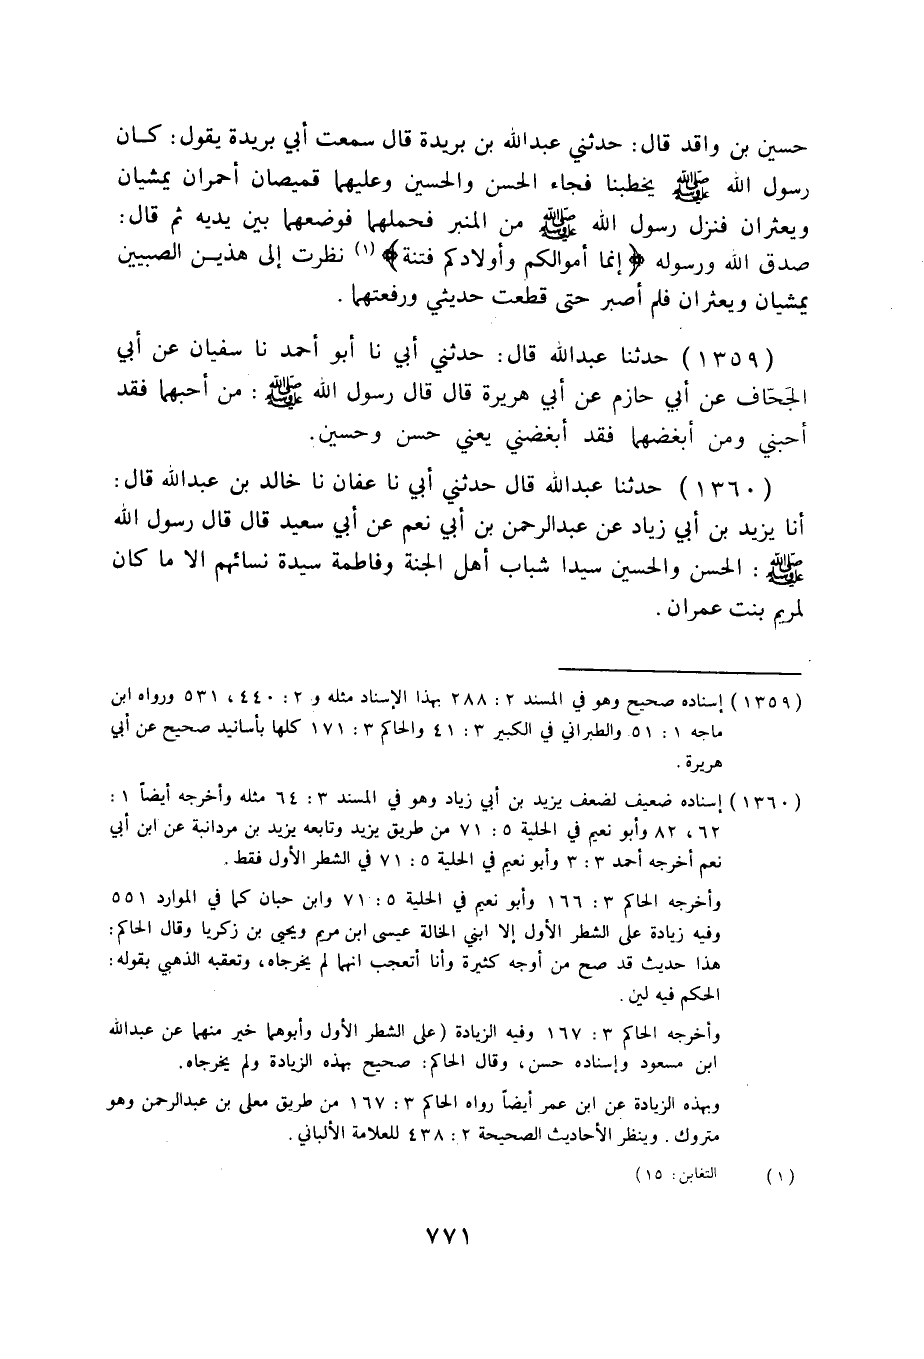 حسين بن واقد قال: حدثني عبدالله بن بريدة قال سمعت أبي بريدة يقول: كان
رسول الله ﷺ يخطبنا فجاء الحسن والحسين وعليهما قميصان أحمران يمشيان
ويعثران فنزل رسول الله ﷺ من المنبر فحملهما فوضعهما بين يديه ثم قال:
صدق الله ورسوله ﴿إنما أموالكم وأولادكم فتنة﴾ (١) نظرت إلى هذين الصبيين
يمشيان ويعثران فلم أصبر حتى قطعت حديثي ورفعتهما .
(١٣٥٩) حدثنا عبدالله قال: حدثني أبي نا أبو أحمد نا سفيان عن أبي
الجحّاف عن أبي حازم عن أبي هريرة قال قال رسول الله ﷺ : من أحبهما فقد
أحبني ومن أبغضهما فقد أبغضني يعني حسن وحسين.
(١٣٦٠) حدثنا عبدالله قال حدثني أبي نا عفان نا خالد بن عبدالله قال:
أنا يزيد بن أبي زياد عن عبدالرحمن بن أبي نعم عن أبي سعيد قال قال رسول الله
ﷺ : الحسن والحسين سيدا شباب أهل الجنة وفاطمة سيدة نسائهم الا ما كان
لمريم بنت عمران .
(١٣٥٩) إسناده صحيح وهو في المسند ٢ : ٢٨٨ بهذا الإسناد مثله و ٢ : ٤٤٠، ٥٣١ ورواه ابن
ماجه ١ : ٥١ والطبراني في الكبير ٣ : ٤١ والحاكم ٣ : ١٧١ كلها بأسانيد صحيح عن أبي
هريرة .
(١٣٦٠) إسناده ضعيف لضعف يزيد بن أبي زياد وهو في المسند ٣ : ٦٤ مثله وأخرجه أيضاً ١ :
٦٢، ٨٢ وأبو نعيم في الحلية ٥ : ٧١ من طريق يزيد وتابعه يزيد بن مردانبة عن ابن أبي
نعم أخرجه أحمد ٣ : ٣ وأبو نعيم في الحلية ٥ : ٧١ في الشطر الأول فقط.
وأخرجه الحاكم ٣ : ١٦٦ وأبو نعيم في الحلية ٥ : ٧١ وابن حبان كما في الموارد ٥٥١
وفيه زيادة على الشطر الأول إلا ابني الخالة عيسى ابن مريم ويحيى بن زكريا وقال الحاكم:
هذا حديث قد صح من أوجه كثيرة وأنا أتعجب انهما لم يخرجاه، وتعقبه الذهبي بقوله:
الحكم فيه لين .
وأخرجه الحاكم ٣ : ١٦٧ وفيه الزيادة (على الشطر الأول وأبوهما خير منهما عن عبدالله
ابن مسعود وإسناده حسن، وقال الحاكم: صحيح بهذه الزيادة ولم يخرجاه.
وبهذه الزيادة عن ابن عمر أيضاً رواه الحاكم ٣ : ١٦٧ من طريق معلى بن عبدالرحمن وهو
متروك . وينظر الأحاديث الصحيحة ٢ : ٤٣٨ للعلامة الألباني .
(١) التغابن: ١٥)
٧٧١